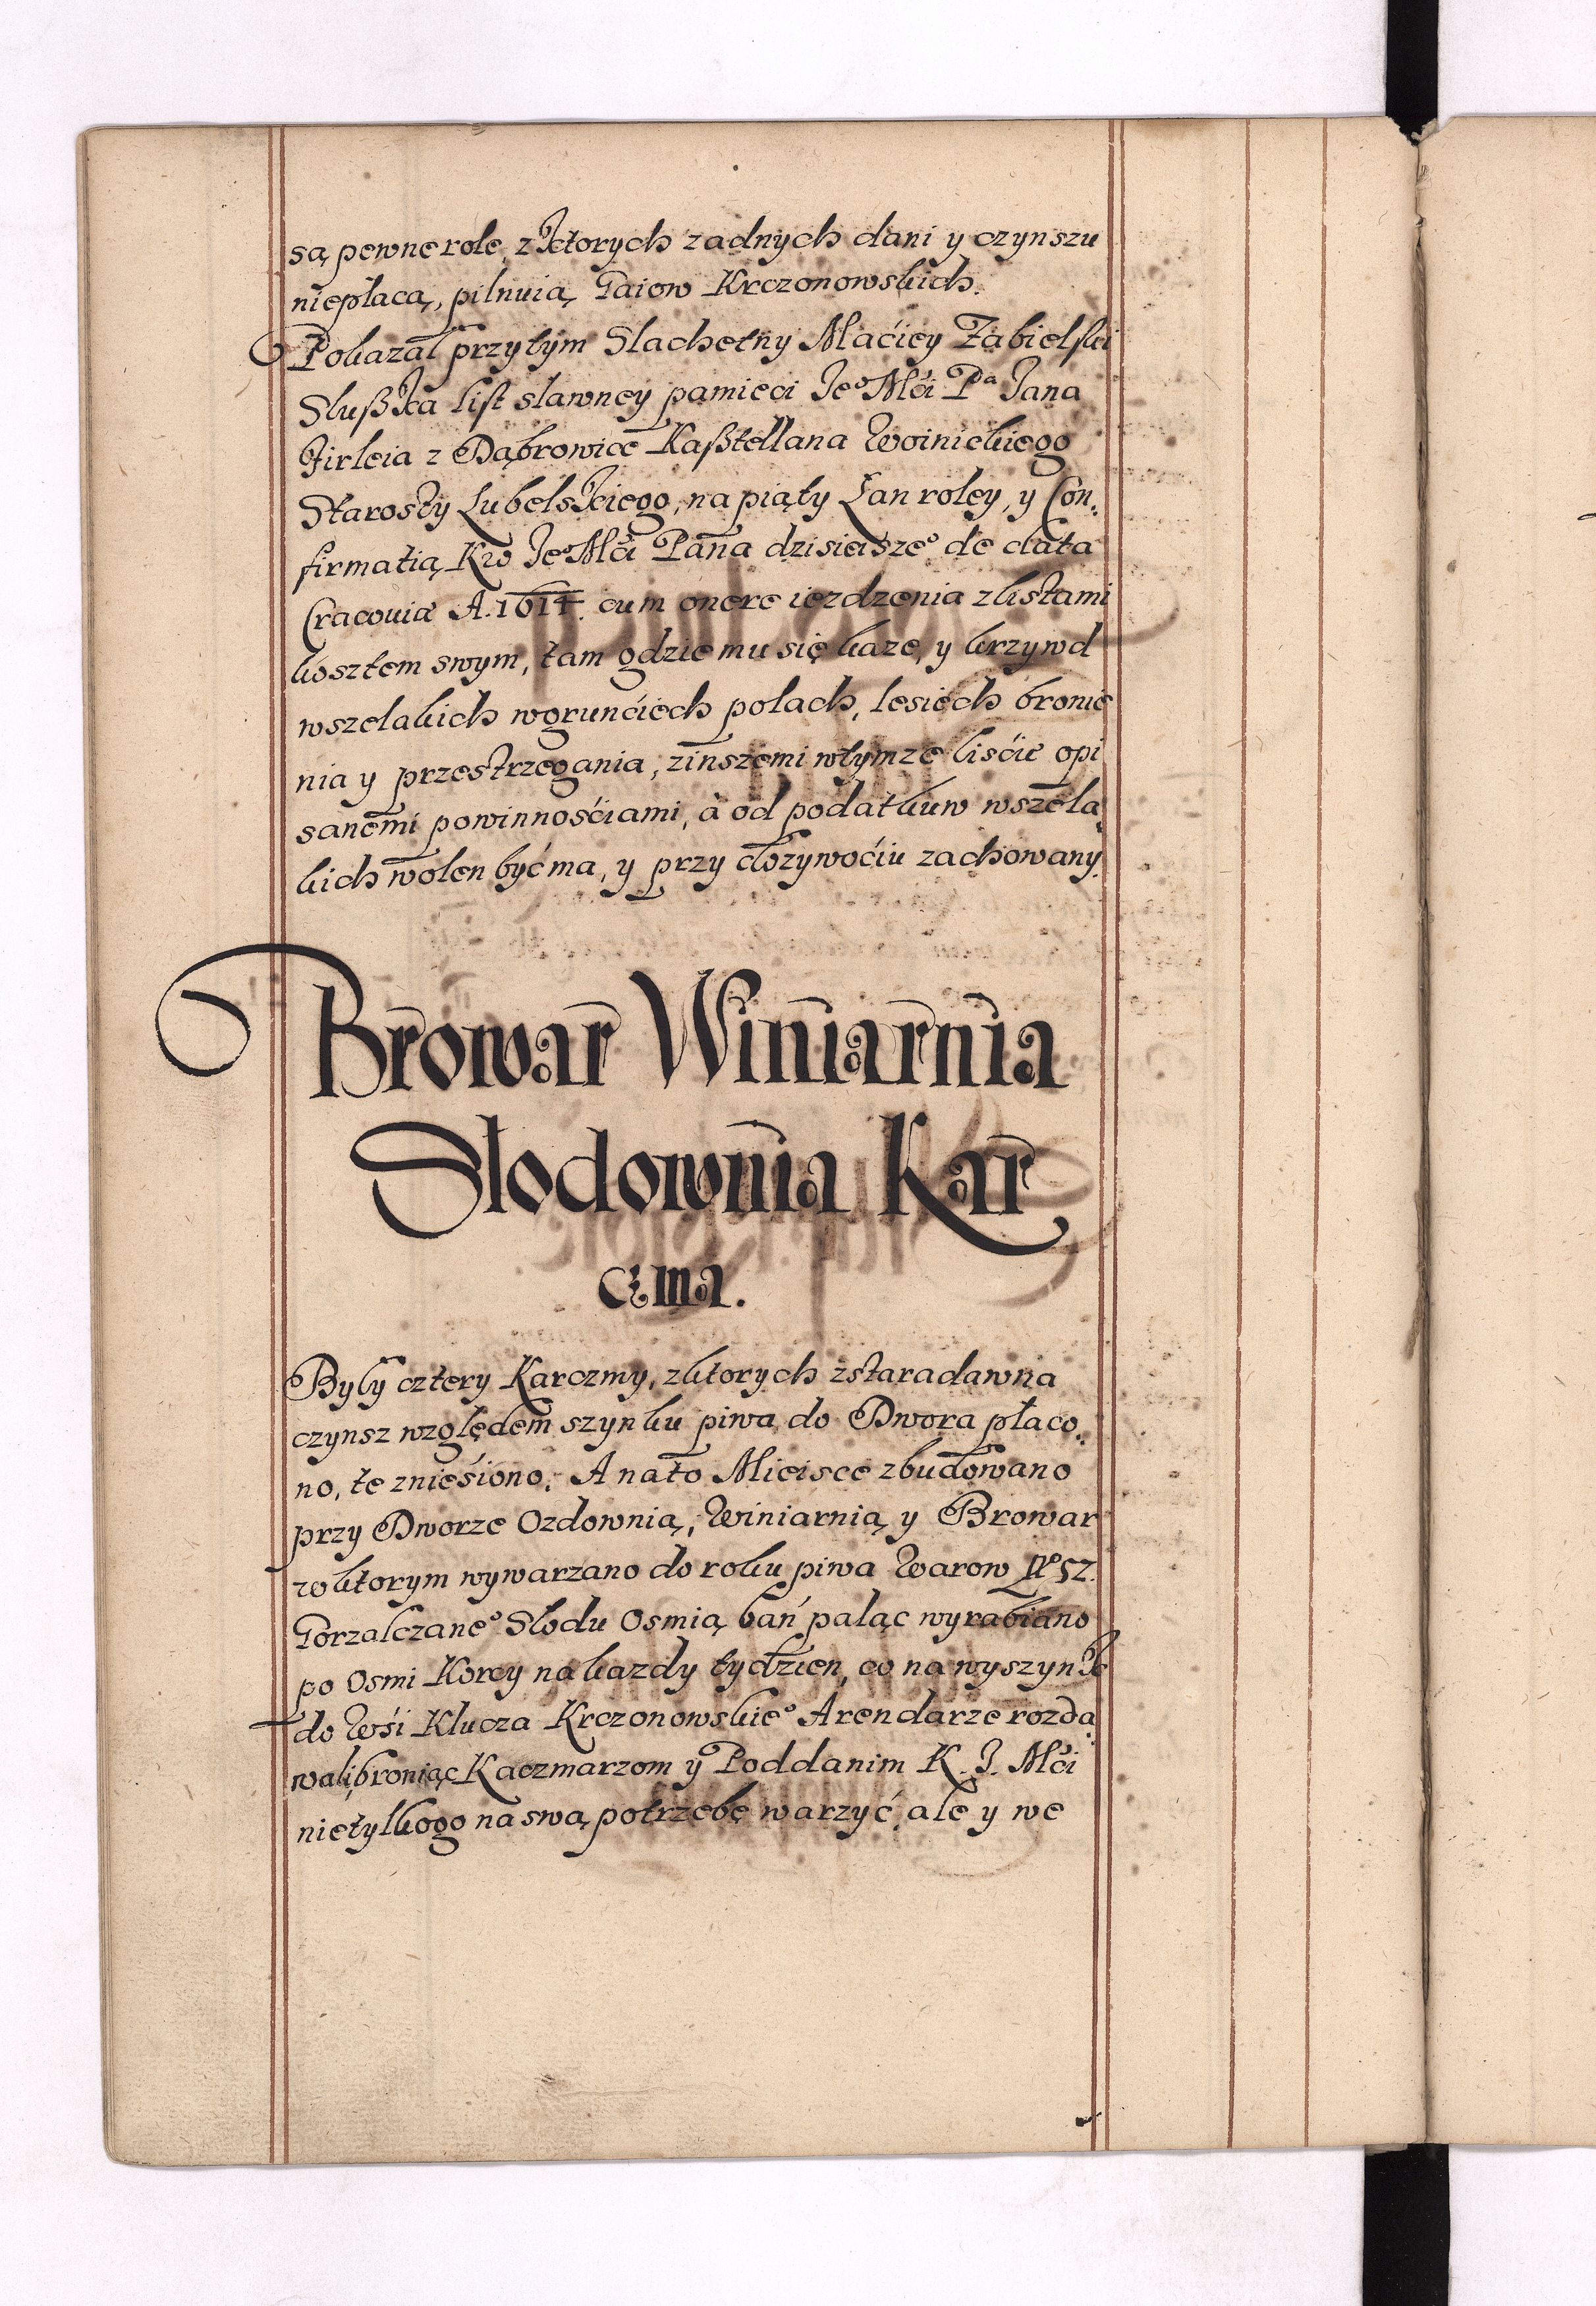 są pewne role, z ktorych zadnych dani y czynszu
niepłacą, pilnuią Gaiow Krczonowskich.
Pokazał przytym Slachetny Maćiey Zabielski
Slußka list sławney pamieci Jeº Mći Pª Jana
Firleia z Dąbrowice Kaßtellana Woinickiego
Starosty Lubelskiego, na piąty Łan roley, y Con,
firmatią Kró Jeº Mći Pana dzisieiszeº de data
Cracouiæ A. 1614. cum onere iezdzenia z listami
kosztem swym, tam gdzie mu się kaze, y krzywd
wszelakich w grunćiech polach, lesiech bronie
nia y przestrzegania, z inszemi w tymze liśćie opi
sanemi powinnośćiami, à od podatkuw wszela,
kich wolen być ma, y przy dozywoćiu zachowany.
Browar Winiarnia
Słodownia Kar
czma.
Były cztery Karczmy, z ktorych z staradawna
czynsz względem szynku piwa do Dwora płaco,
no, te znieśiono; A na to Mieisce zbudowano
przy Dworze Ozdownią, Winiarnią y Browar
w ktorym wywarzano do roku piwa Warow Nº 52.
Gorzalczaneº Słodu Osmią bań paląc wyrabiano
po Osmi Korcy na kazdy tydzien, co na wyszynk
do Wśi Klucza Krczonowskieº Arendarze rozda,
wali, broniąc Kaczmarzom y Poddanim K. J. Mći
nietylkogo na swą potrzebę warzyć, ale y we